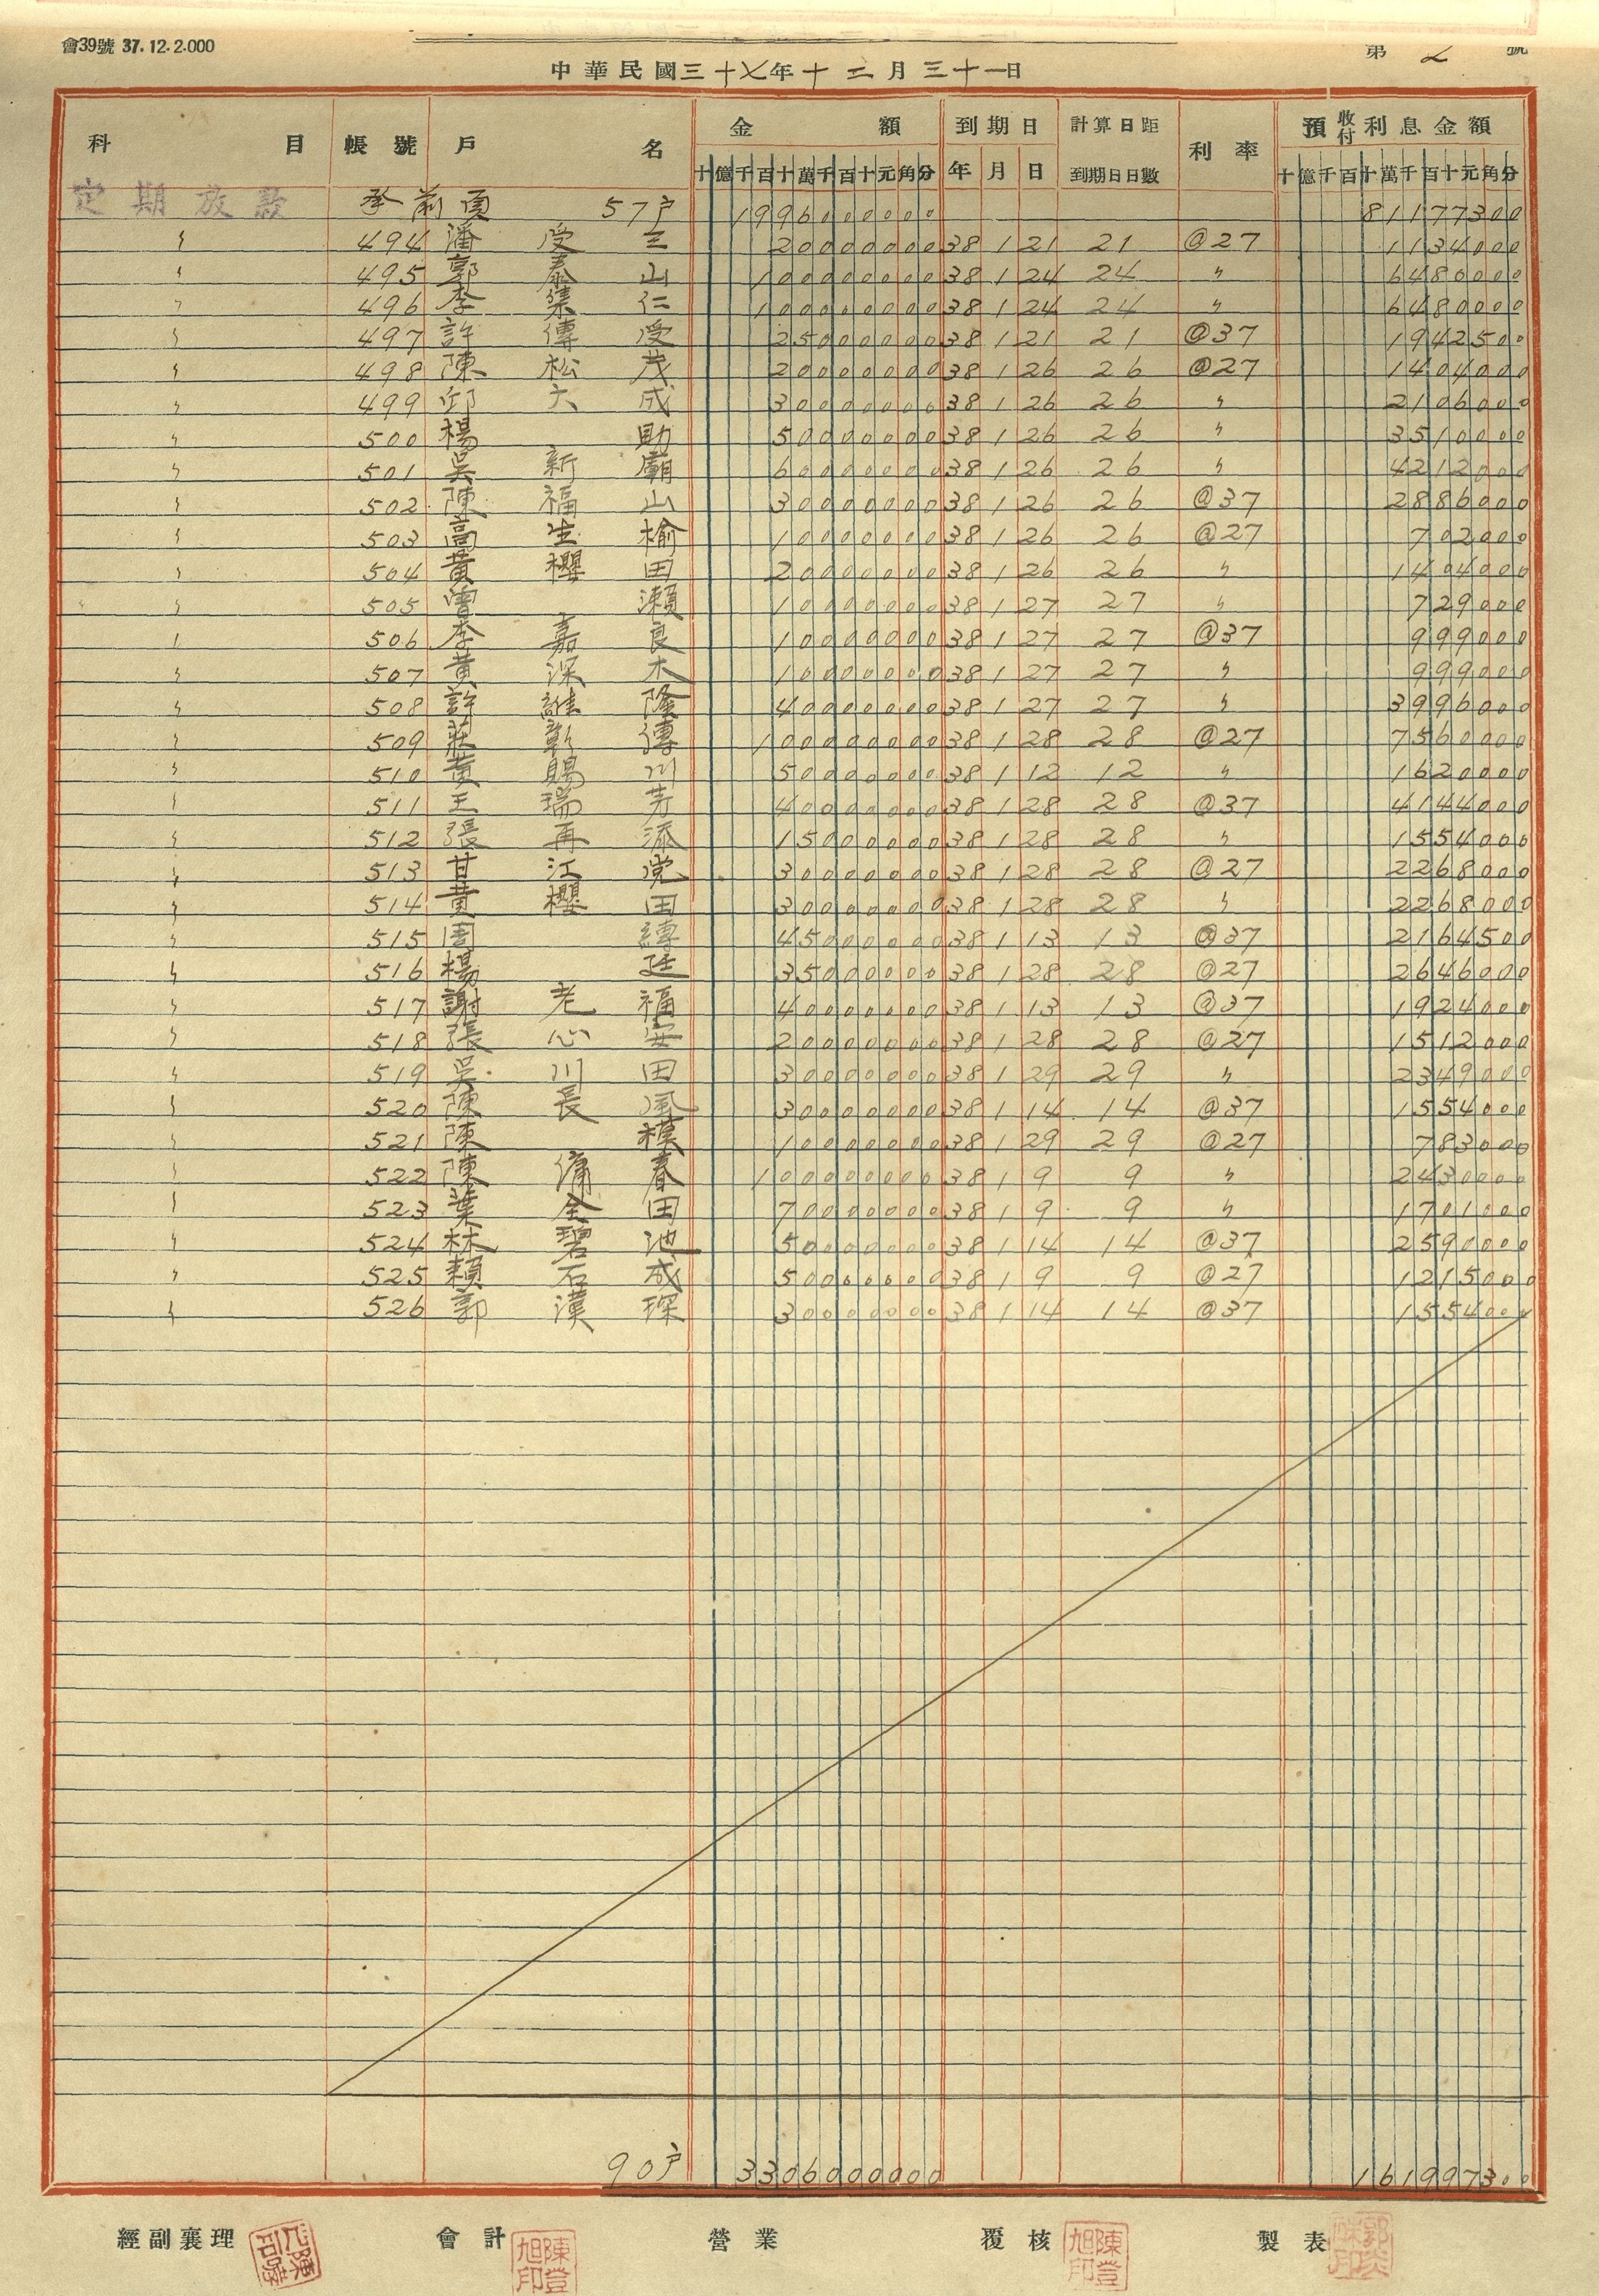 會39號 37.12.2.000
第 2 號
中華民國三十七年十二月三十一日
科目 帳號 戶名 金額 到期日 計算日距到期日日數 利率 預收付利息金額
十億千百十萬千百十元角分 年月日 十億千百十萬千百十元角分
定期放款 承前頁 57户 1996000000 81177300
〃 494 潘受三 20000000 38 1 21 21 @27 1134000
〃 495 郭泰山 100000000 38 1 24 24 〃 6480000
〃 496 李集仁 100000000 38 1 24 24 〃 6480000
〃 497 許傳受 25000000 38 1 21 21 @37 1942500
〃 498 陳松茂 20000000 38 1 26 26 @27 1404000
〃 499 邱六成 30000000 38 1 26 26 〃 2106000
〃 500 楊助 50000000 38 1 26 26 〃 3510000
〃 501 吳新廟 60000000 38 1 26 26 〃 4212000
〃 502 陳福山 30000000 38 1 26 26 @37 2886000
〃 503 高生榆 10000000 38 1 26 26 @27 702000
〃 504 黃櫻田 20000000 38 1 26 26 〃 1404000
〃 505 曾瀨 10000000 38 1 27 27 〃 729000
〃 506 李嘉良 10000000 38 1 27 27 @37 999000
〃 507 黃深木 10000000 38 1 27 27 〃 999000
〃 508 許維隆 40000000 38 1 27 27 〃 3996000
〃 509 莊彰傳 100000000 38 1 28 28 @27 7560000
〃 510 黃賜川 50000000 38 1 12 12 〃 1620000
〃 511 王瑞芳 40000000 38 1 28 28 @37 4144000
〃 512 張再添 15000000 38 1 28 28 〃 1554000
〃 513 甘江党 30000000 38 1 28 28 @27 2268000
〃 514 黃櫻田 30000000 38 1 28 28 〃 2268000
〃 515 周縛 45000000 38 1 13 13 @37 2164500
〃 516 楊廷 35000000 38 1 28 28 @27 2646000
〃 517 謝老福 40000000 38 1 13 13 @37 1924000
〃 518 張心安 20000000 38 1 28 28 @27 1512000
〃 519 吳川田 30000000 38 1 29 29 〃 2349000
〃 520 陳長風 30000000 38 1 14 14 @37 1554000
〃 521 陳模 10000000 38 1 29 29 @27 783000
〃 522 陳春 100000000 38 1 9 9 〃 2430000
〃 523 葉全田 70000000 38 1 9 9 〃 1701000
〃 524 林碧池 50000000 38 1 14 14 @37 2590000
〃 525 賴石成 50000000 38 1 9 9 @27 1215000
〃 526 郭漢琛 30000000 38 1 14 14 @37 1554000
90户 3306000000 161997300
經副襄理 會計 陳登旭印 營業 覆核 陳登旭印 製表